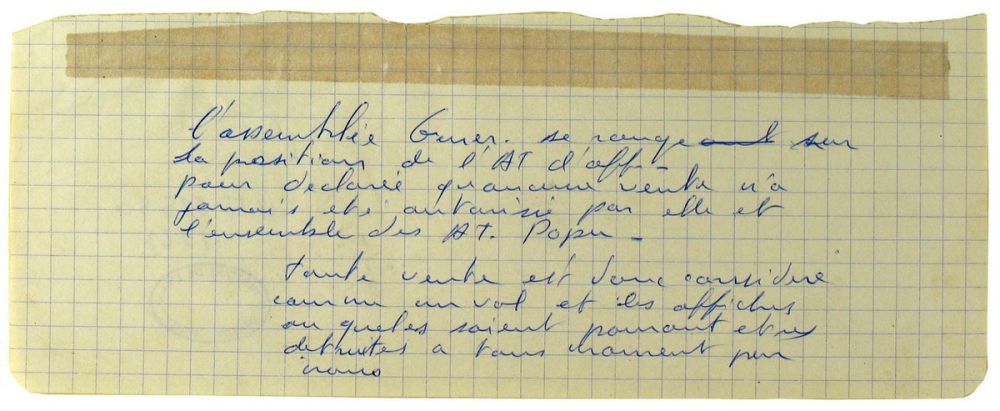 l'assemblée Gener. se range sur
la position de l'AT d'aff-
pour declaree qu'aucune vente n'a
jamais ete autorisie par elle et
l'ensemble des AT. Popu -
toute vente est donc considere
comme un vol et les affiches
ou queles soient pouront etres
detruites a tous moment par
nous